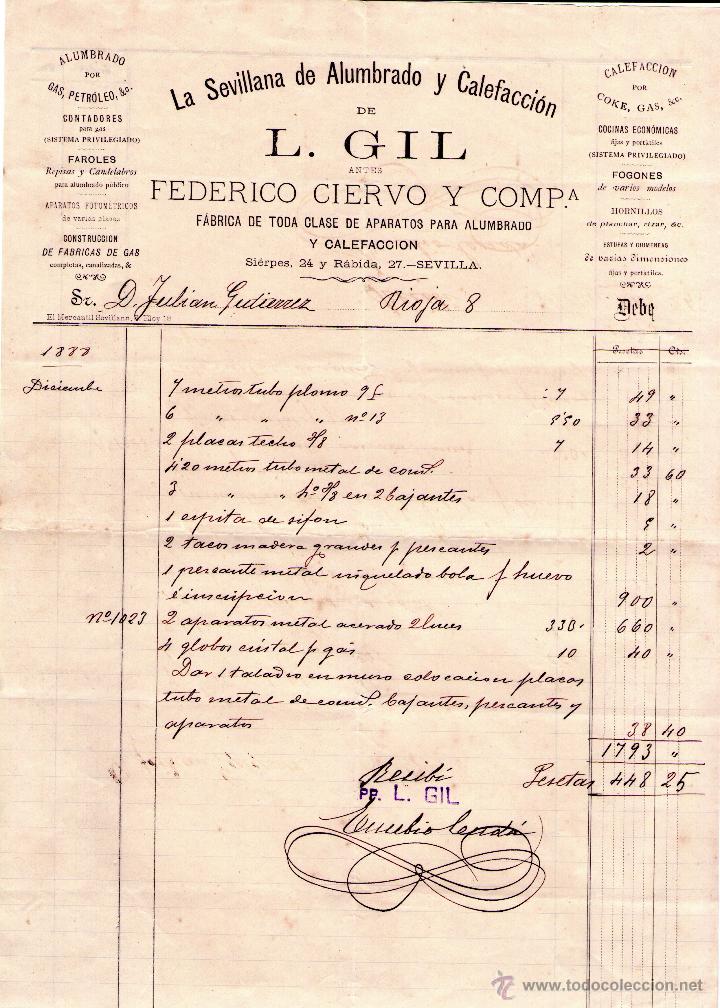 ALUMBRADO
POR
GAS, PETRÓLEO, &c.
CONTADORES
para gas
(SISTEMA PRIVILEGIADO)
FAROLES
Repisas y Candelabros
para alumbrado público
APARATOS FOTOMÉTRICOS
de varias clases
CONSTRUCCION
DE FABRICAS DE GAS
completas, canalizadas, &
La Sevillana de Alumbrado y Calefacción
DE
L. GIL
ANTES
FEDERICO CIERVO Y COMP.A
FÁBRICA DE TODA CLASE DE APARATOS PARA ALUMBRADO
Y CALEFACCION
Siérpes, 24 y Rábida, 27.—SEVILLA.
CALEFACCION
POR
COKE, GAS, &c.
COCINAS ECONÓMICAS
fijas y portátiles
(SISTEMA PRIVILEGIADO)
FOGONES
de varios modelos
HORNILLOS
de planchar, rizar, &c.
ESTUFAS Y CHIMENEAS
de varias dimensiones
fijas y portátiles.
Sr. D. Julian Gutierrez Rioja 8
Debe
El Mercantil Sevillano, Eloy 18
1888 Pesetas Cts.
Diciembre 7 metros tubo plomo 7 49 "
6 " " " nº 13 5'50 33 "
2 placas techo 3/8 7 14 "
4'20 metros tubo metal de 33 60
3 " " 3/8 en 2 bajantes 18 "
1 espita de sifon "
2 tacos madera grandes p pescantes 2 "
1 pescante metal niquelado bola huevo
é inscripcion 900 "
Nº 1023 2 aparatos metal acerado 2 luces 330 660 "
4 globos cristal p gás 10 40 "
Dar 1 taladro en muro colocacion placas
tubo metal de bajantes, pescantes y
aparatos 38 40
1793 "
Recibí Pesetas 448 25
PP. L. GIL
Eusebio
www.todocoleccion.net